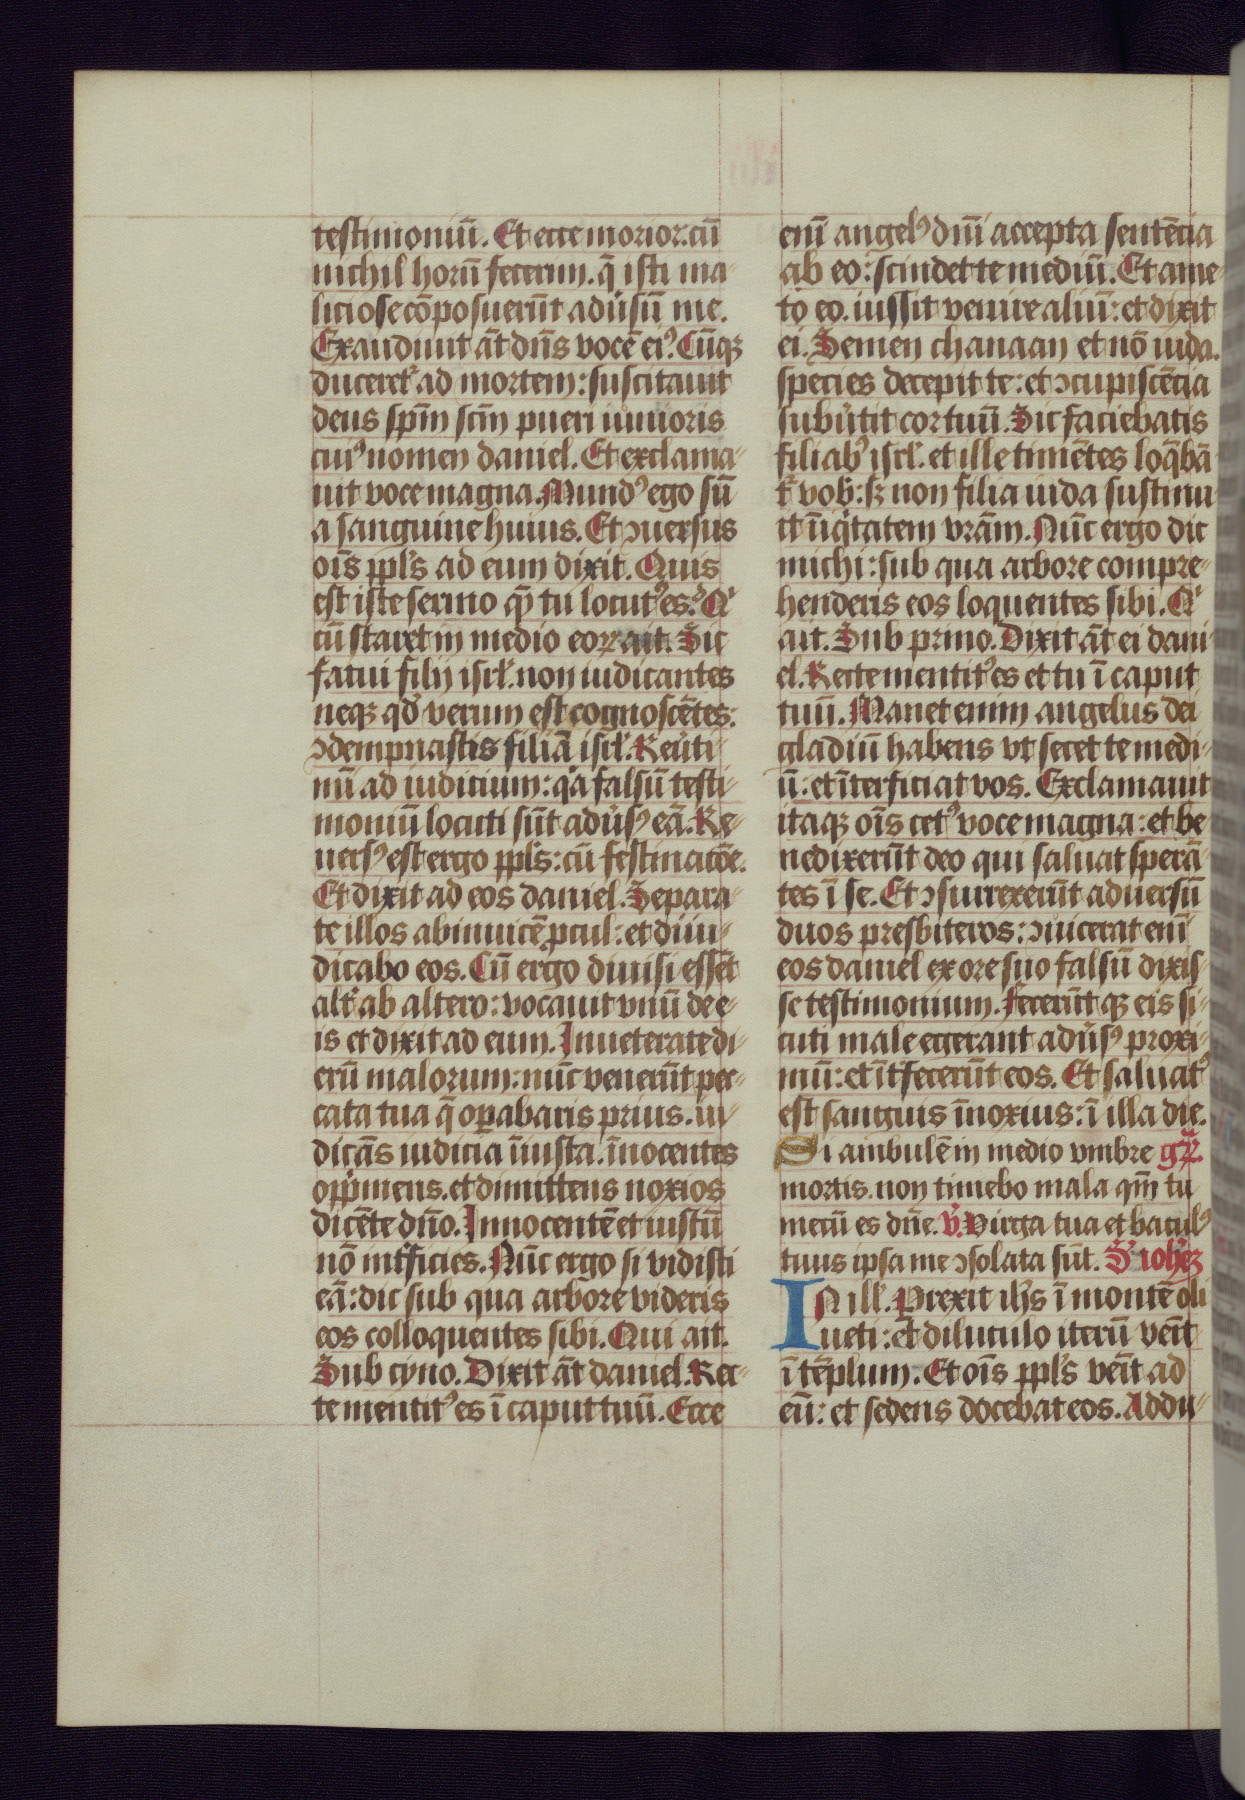 testimoniū. Et ecce morior. cū
nichil horū fecerim. q̄ isti ma-
liciose cōposuerūt adūsū me.
Exaudiuit āt dn̄s vocē eiꝰ. Cūqꝫ
ducereť ad mortem: suscitauit
deus spm̄ scm̄ pueri iunioris
cuiꝰ nomen daniel. Et exclama-
uit voce magna. Mundꝰ ego sū
a sanguine huius. Et ꝯuersus
oīs ppl̄s ad eum dixit. Quis
est iste sermo qē tu locutꝰ es. Qͥ
cū staret in medio eoꝝ ait. Sic
fatui filij isrł. non iudicantes
neqꝫ qď verum est cognoscētes.
ꝯdempnastis filiā isrł. Reūti-
mī ad iudicium: qͥa falsū testi-
moniū locuti sūt adūsꝰ eā. Re-
uersꝰ est ergo ppl̄s: cū festinacōe.
Et dixit ad eos daniel. Separa-
te illos abinuicē ꝓcul: et diiu-
dicabo eos. Cū ergo diuisi essēt
altʳ ab altero: vocauit vnū de e-
is et dixit ad eum. Inueterate di-
erū malorum: nūc venerūt pec-
cata tua q̄ oꝑabaris prius. iu-
dicās iudicia īiusta. īnocentes
oppͥmens. et dimittens noxios
dicēte dn̄o. Innocentē et iustū
nō intʳficies. Nūc ergo si vidisti
eā: dic sub qua arbore videris
eos colloquentes sibi. Qui ait.
Sub cyno. Dixit āt daniel. Rec-
te mentitꝰ es ī caput tuū. Ecce
enī angelꝰ dn̄i accepta sentēcia
ab eo: scindet te mediū. Et ame-
to eo. iussit venire aliū: et dixit
ei. Semen chanaan et nō iuda.
species decepit te: et ꝯcupiscēcia
subūtit cor tuū. Sic faciebatis
filiabꝰ isrł. et ille timētes loq̄bā-
tʳ vob: sꝫ non filia iuda sustinu-
it īiqͥtatem vrām. Nūc ergo dic
michi: sub qua arbore compre-
henderis eos loquentes sibi. Qͥ
ait. Sub primo. Dixit āt ei dani-
el. Recte mentitꝰ es et tu ī caput
tuū. Manet enim angelus dei
gladiū habens vt secet te medi-
ū: et īterficiat vos. Exclamauit
itaqꝫ oīs cetꝰ voce magna: et be-
nedixerūt deo qui saluat sperā-
tes ī se. Et ꝯsurrexerūt aduersū
duos presbiteros: ꝯuicerat enī
eos daniel ex ore suo falsū dixis-
se testimonium. fecerūt qꝫ eis si-
cuti male egerant adūsꝰ proxi-
mū: et ītʳfecerūt eos. Et saluatꝰ
est sanguis īnoxius: ī illa die.
Si ambulē in medio vmbre gr̄.
mortis. non timebo mala qm̄ tu
mecū es dn̄e. v̄. Virga tua et baculꝰ
tuus ipsa me ꝯsolata sūt. S' ioh'eꝫ
IN ill'. Prexit ih̄s ī montē oli-
ueti: et diluculo iterū vēit
ī tēplum. Et oīs ppl̄s vēit ad
eū: et sedens docebat eos. Addu-